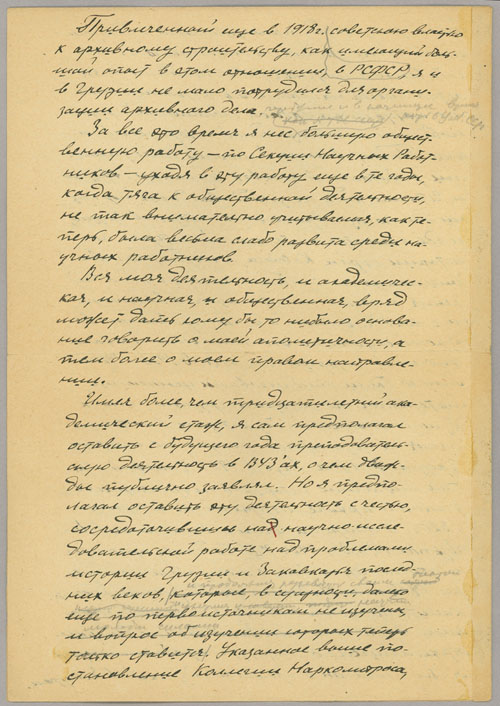 Привлеченный еще в 1918г. советскою властью
к архивному строительству, как имеющий боль-
шой опыт в этом отношении, в РСФСР, я и
в Грузии не мало потрудился для органи-
зации архивного дела
За все это время я нес большую общест-
венную работу – по Секции Научных Работ-
ников – уходя в эту работу еще в те годы,
когда тяга к общественной деятельности,
не так внимательно учитываемая, как те-
перь, была весьма слабо развита среди на-
учных работников
Вся моя деятельность, и академичес-
кая, и научная, и общественная, вряд
может дать кому бы то нибыло основа-
ние говорить о моей аполитичности, а
тем более о моем правом направле-
нии.
Имея более, чем тридцатилетний ака-
демический стаж, я сам предполагал
оставить с будущего года преподователь-
скую деятельность в ВУЗ'ах, о чем дваж-
ды публично заявлял. Но я предпо-
лагал оставить эту деятельность с честью,
сосредоточившись над научно-иссле-
довательской работе над проблемами
истории Грузии и Закавказья послед-
них веков, которое, в сущности, далеко
еще по первоисточникам не изучены,
и вопрос об изучении которых теперь
только ставится. Указанное выше по-
становление Коллегии Наркомпроса,